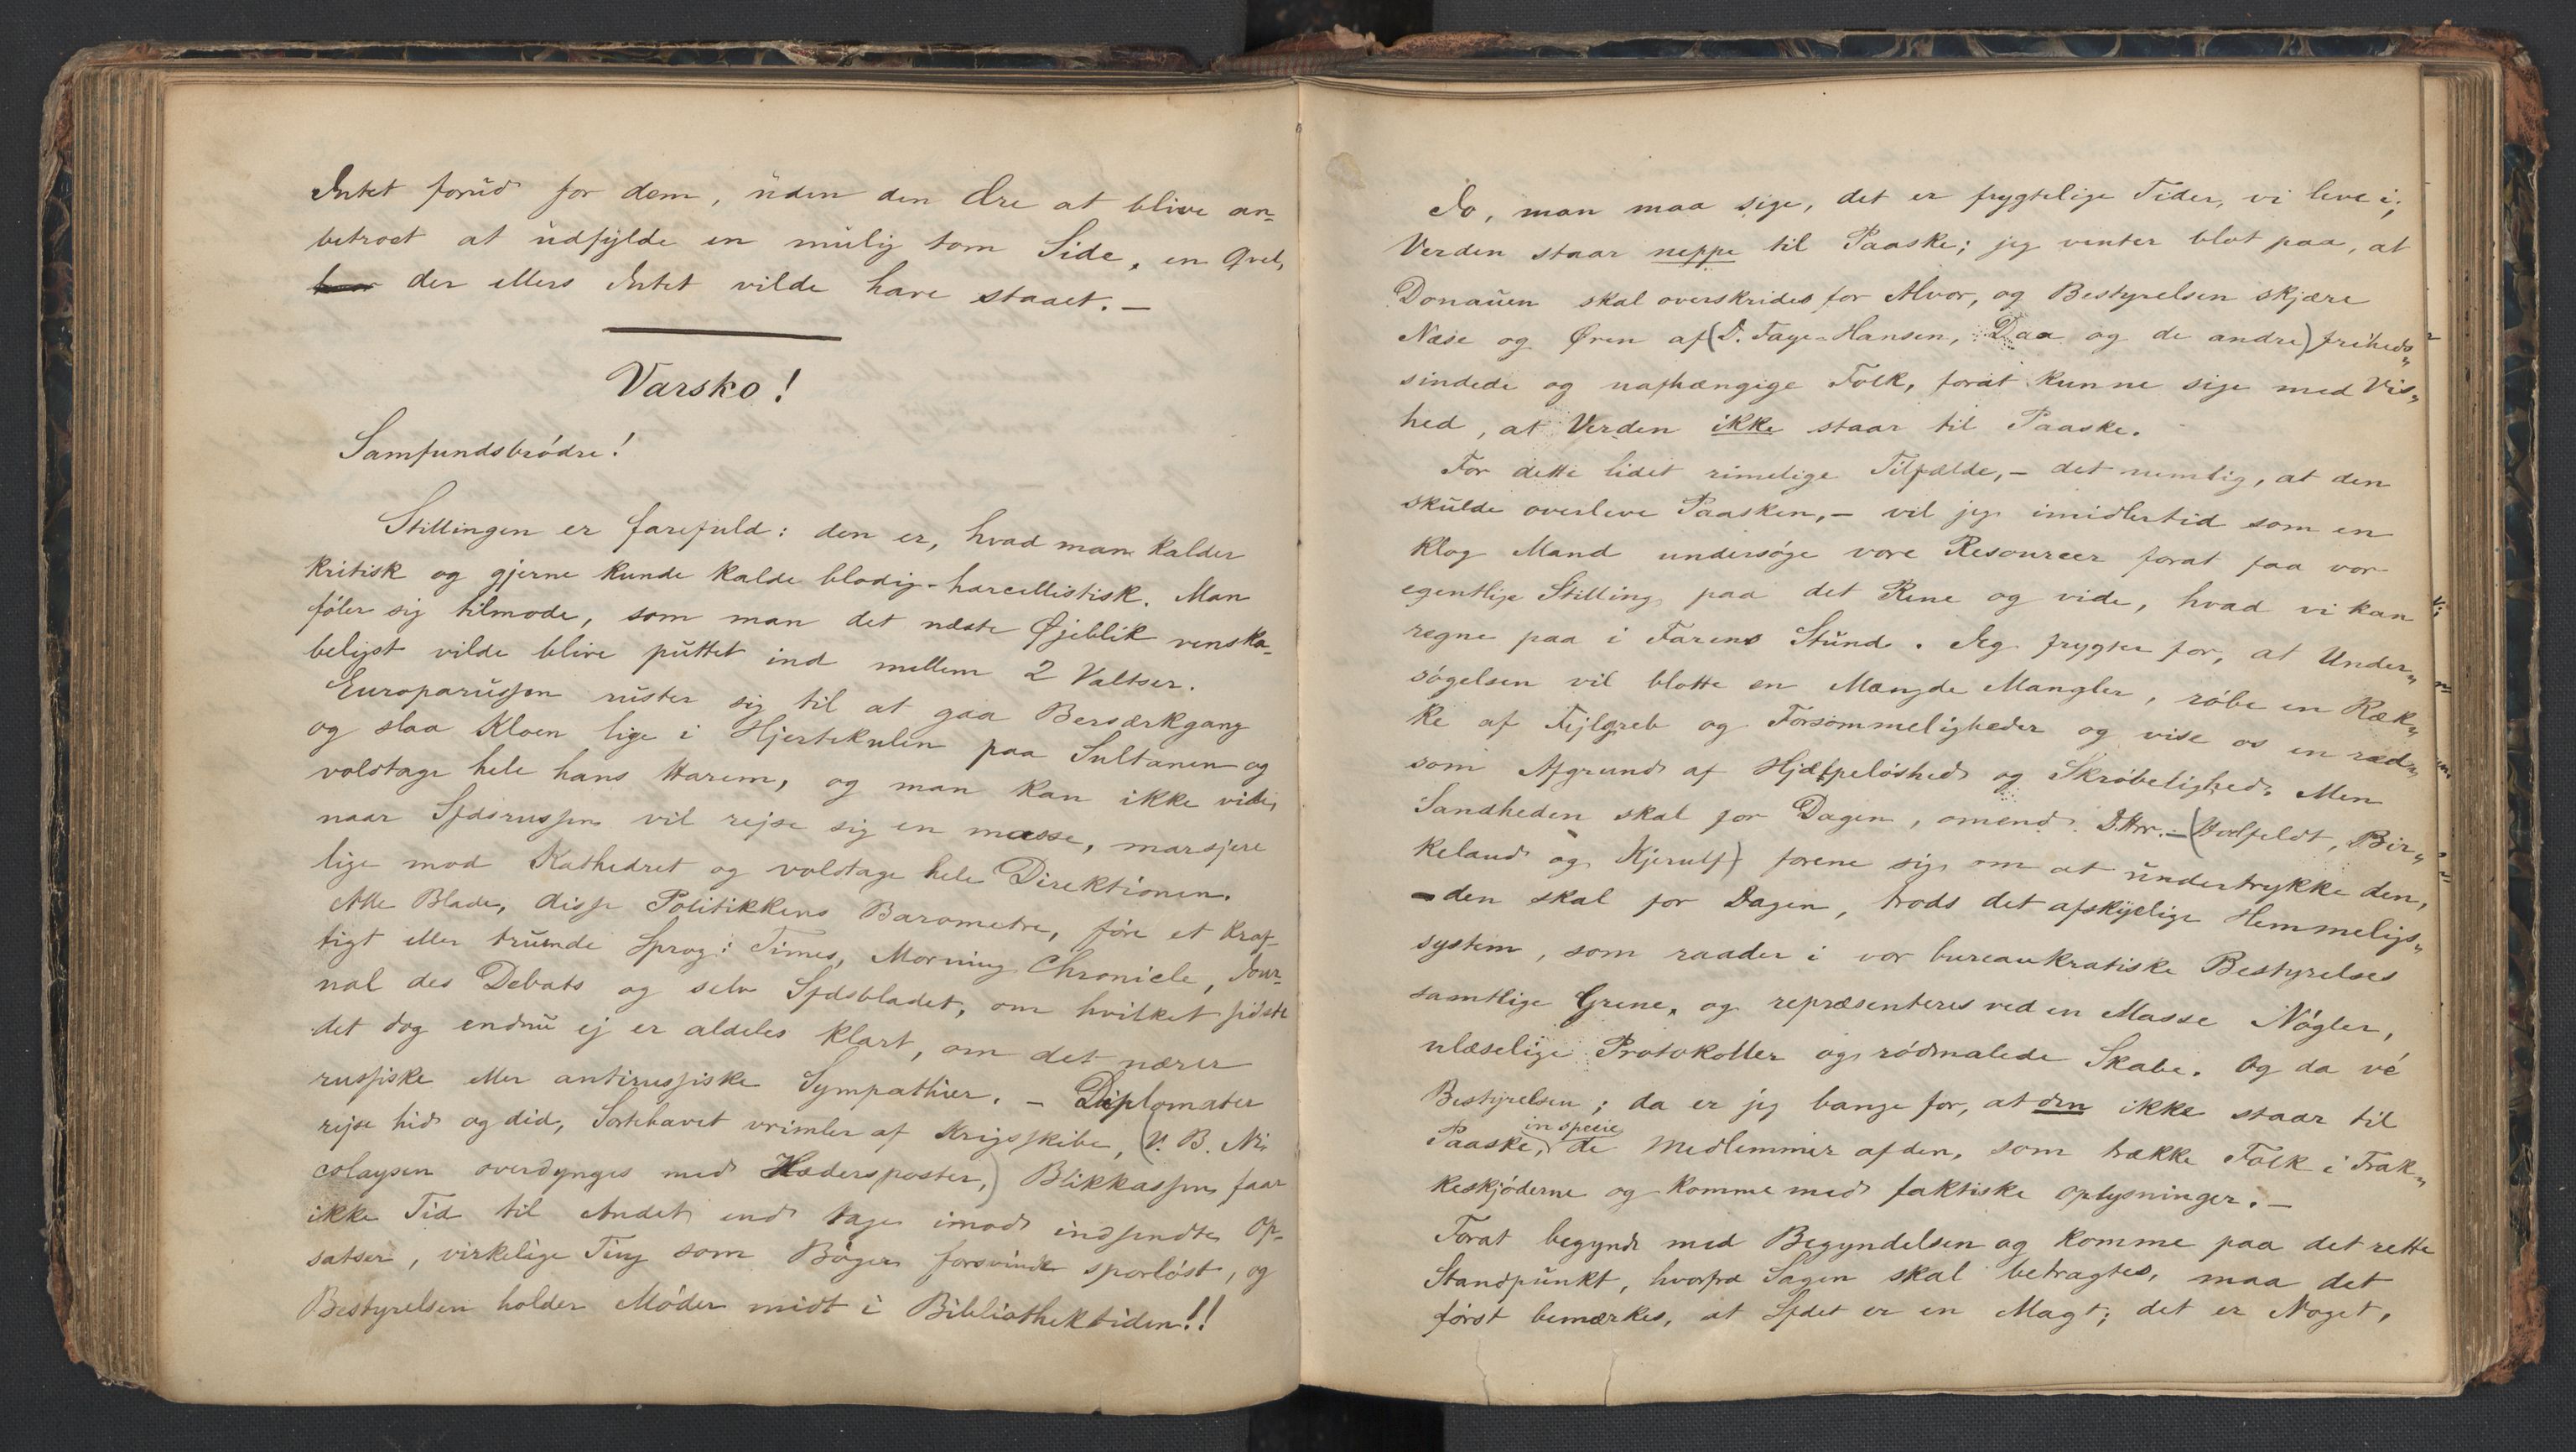 Intet forud for dem, uden den Ære at blive an-
betroet at udfylde en mulig tom Side, en Qvel,
der ellers Intet vilde have staaet. —
Varsko!
Samfundsbrödre!
Stillingen er farefuld: den er, hvad man kalder
kritisk og gjerne kunde kalde blodig-harcellistisk. Man
föler sig tilmode, som man det næste Øjeblik venska-
beligst vilde blive puttet ind mellem 2 Valtser.
Europarussen ruster sig til at gaa Bersærkgang
og slaa Kloen lige i Hjertekulen paa Sultanen og
voldtage hele hans Harem, og man kan ikke vide,
naar Sfdsrussen vil rejse sig en masse, marsjere
lige mod Kathedret og voldtage hele Direktionen.
Alle Blade, disse Politikkens Barometre, före et kraf-
tigt eller truende Sprog: Times, Morning Chronicle, Jour-
nal des Debats og selv Sfdsbladet, om hvilket sidste
det dog endnu ej er aldeles klart, om det nærer
russiske eller antirussiske Sympathier. — Diplomater
rejse hid og did, Sortehavet vrimler af Krigsskibe, (V. B. Ni-
colaysen overdynges med Hædersposter,) Blikkassen faar
ikke Tid til Andet end tage imod indsendte Op-
satser, virkelige Ting som Böger forsvinde sporlöst, og
Bestyrelsen holder Möder midt i Bibliothektiden!!
Jo, man maa sige, det er frygtelige Tider, vi leve i;
Verden staar neppe til Paaske; jeg venter blot paa, at
Donauen skal overskrides for Alvor, og Bestyrelsen skjære
Næse og Øren af (D. Faye-Hansen, Daa og de andre) friheds-
sindede og uafhængige Folk, forat kunne sige med Vis-
hed, at Verden ikke staar til Paaske.
For dette lidet rimelige Tilfælde, — det nemlig, at den
skulde overleve Paasken, — vil jeg imidlertid som en
klog Mand undersöge vore Resourcer forat faa vor
egentlige Stilling paa det Rene og vide, hvad vi kan
regne paa i Farens Stund. Jeg frygter for, at Under-
sögelsen vil blotte en Mængde Mangler, röbe en Ræk-
ke af Fejlgreb og Forsömmeligheder og vise os en ræd-
som Afgrund af Hjælpelöshed og Skröbelighed. Men
Sandheden skal for Dagen, omend D.Hrr. — (Holfeldt, Bir-
keland og Kjerulf) forene sig om at undertrykke den,
— den skal for Dagen, trods det afskyelige Hemmeligs-
system, som raader i vor bureaukratiske Bestyrelses
samtlige Grene, og repræsenteres ved en Masse Nögler,
ulæselige Protokoller og rödmalede Skabe. Og da vé
Bestyrelsen; da er jeg bange for, at den ikke staar til
Paaske, in specie de Medlemmer af den, som trække Folk i Frak-
keskjöderne og komme med faktiske Oplysninger. —
Forat begynde med Begyndelsen og komme paa det rette
Standpunkt, hvorfra Sagen skal betragtes, maa det
först bemærkes, at Sfdet er en Magt; det er Noget,